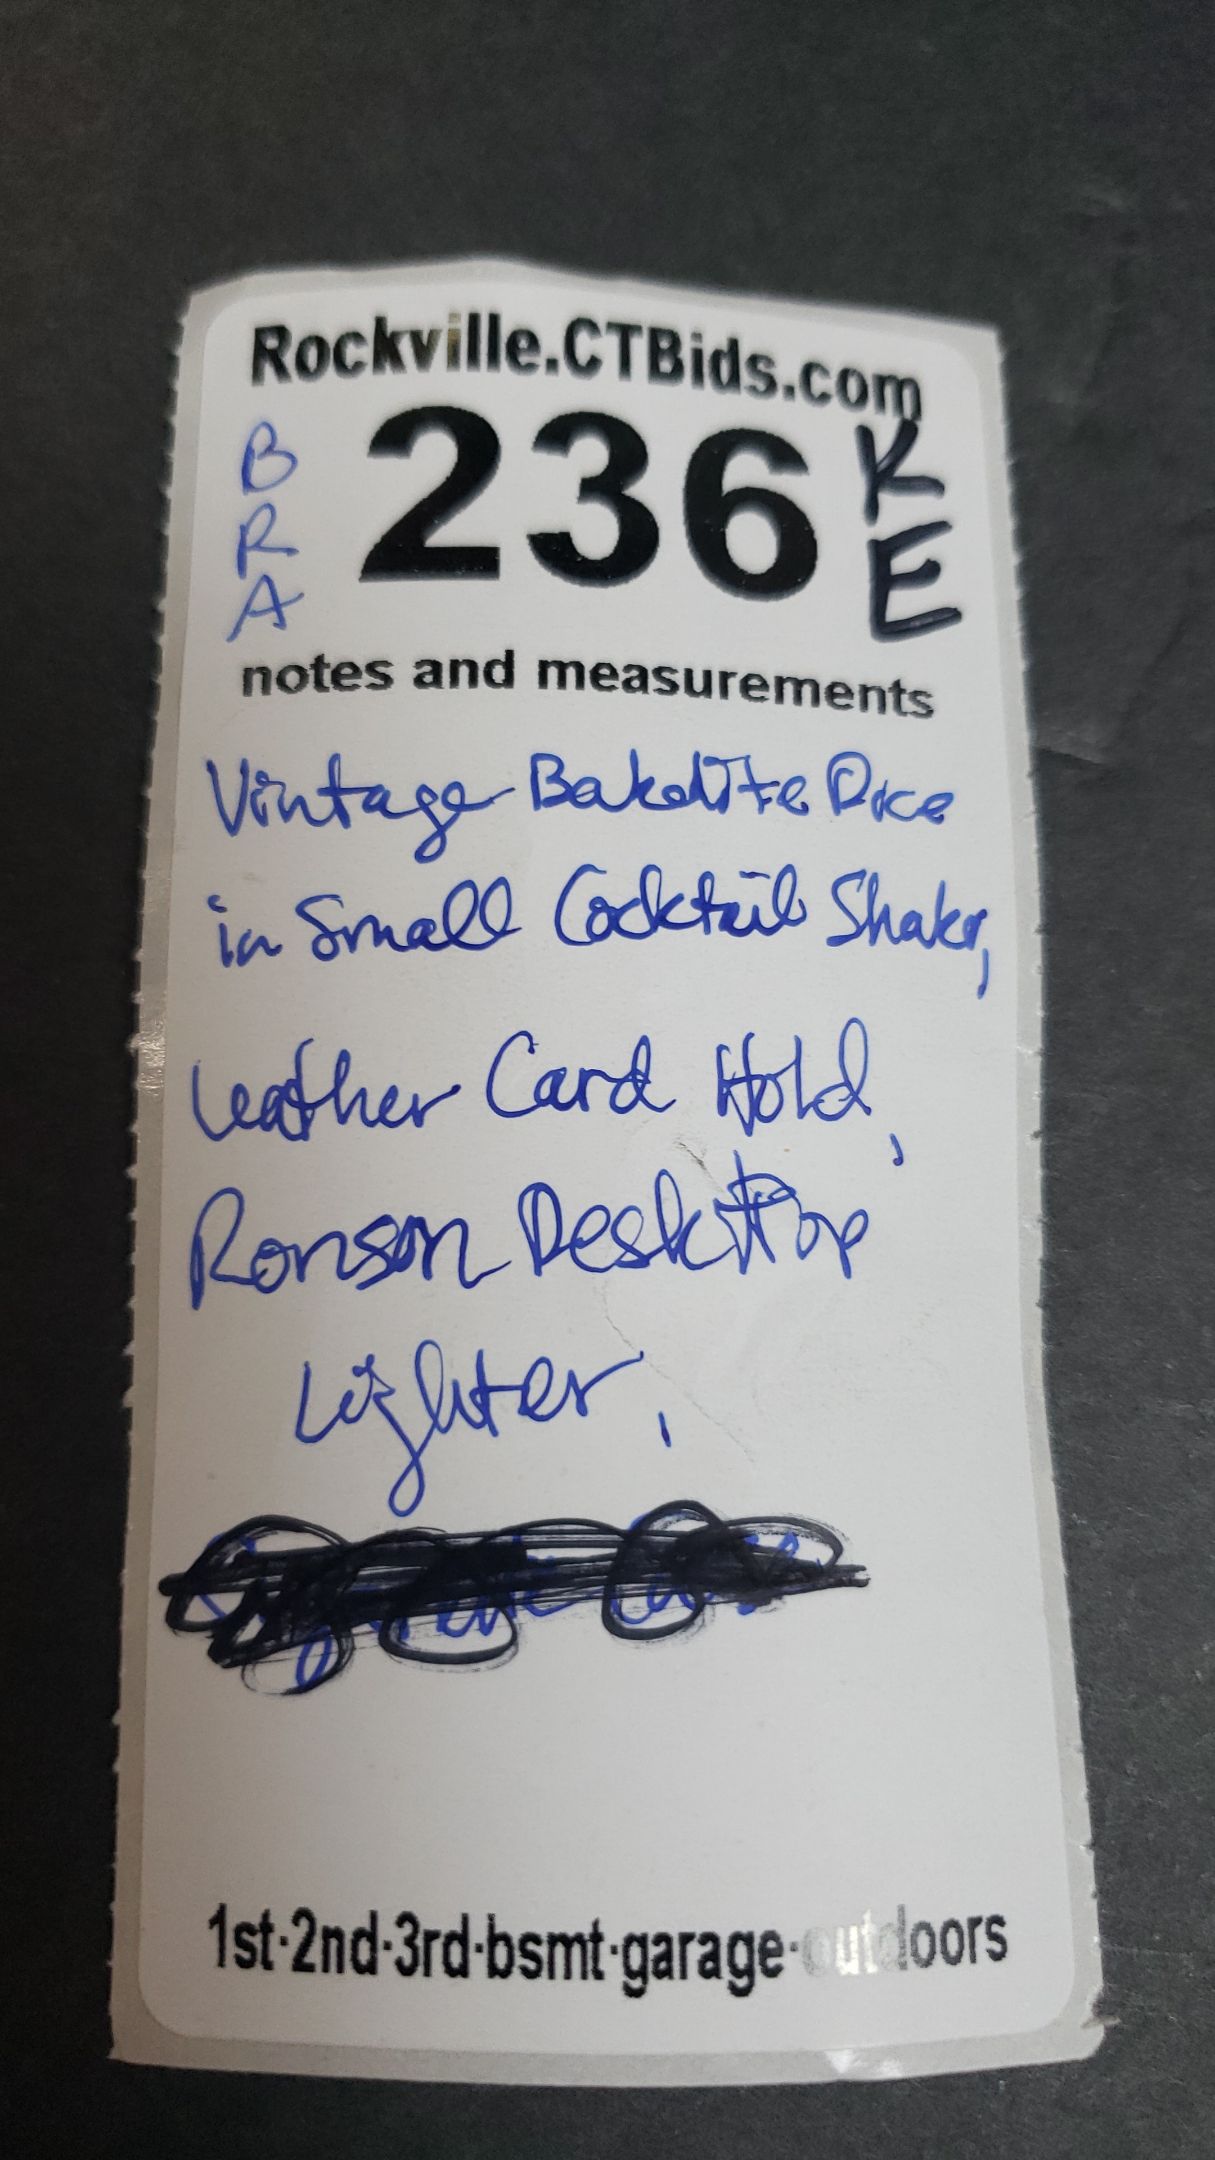 Rockville.CTBids.com
B
R
A
236
K
E
notes and measurements
Vintage Bakelite Dice
in Small Cocktail Shaker,
Leather Card Hold,
Ronson Desk Top
Lighter,
1st·2nd·3rd·bsmt·garage·outdoors